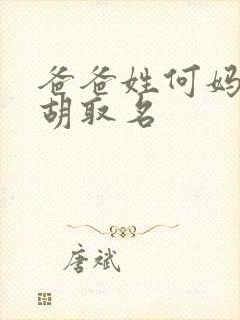 爸爸姓何妈
胡取名
唐斌